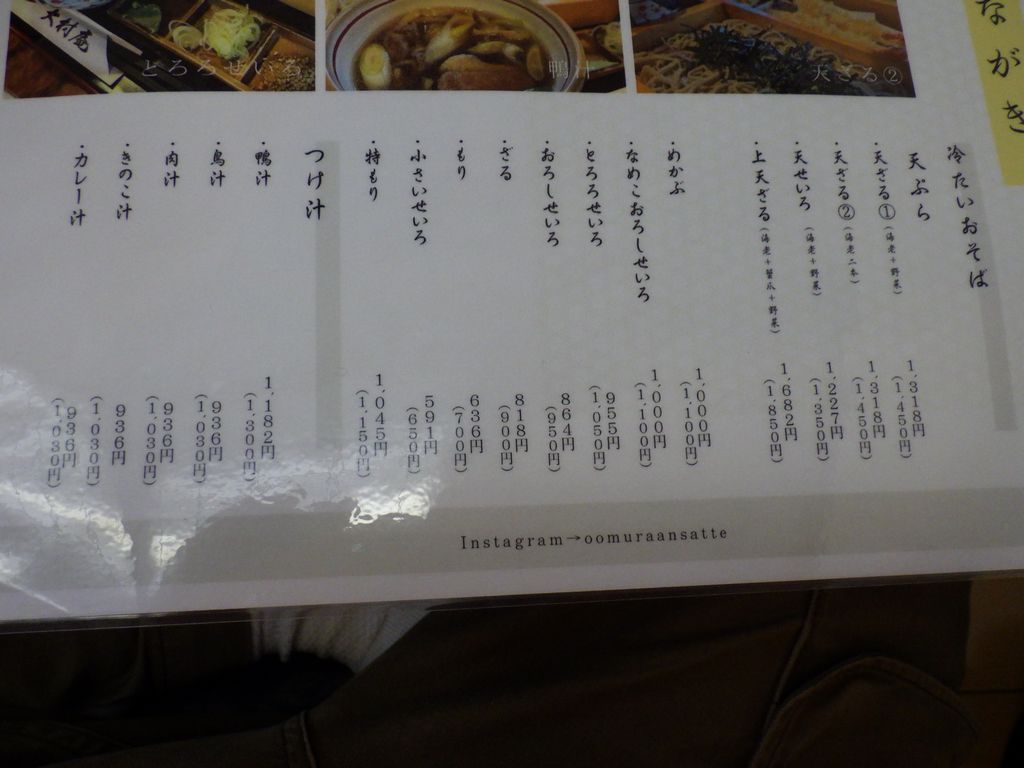 ながき
大村庵
とろろせいろ
鴨汁
天ざる②
冷たいおそば
天ぷら
・天ざる①(海老+野菜) 1,318円(1,450円)
・天ざる②(海老二本) 1,318円(1,450円)
・天せいろ(海老+野菜) 1,227円(1,350円)
・上天ざる(海老+蟹爪+野菜) 1,682円(1,850円)
・めかぶ 1,000円(1,100円)
・なめこおろしせいろ 1,000円(1,100円)
・とろろせいろ 955円(1,050円)
・おろしせいろ 864円(950円)
・ざる 818円(900円)
・もり 636円(700円)
・小さいせいろ 591円(650円)
・特もり 1,045円(1,150円)
つけ汁
・鴨汁 1,182円(1,300円)
・鳥汁 936円(1,030円)
・肉汁 936円(1,030円)
・きのこ汁 936円(1,030円)
・カレー汁 936円(1,030円)
Instagram→oomuraansatte